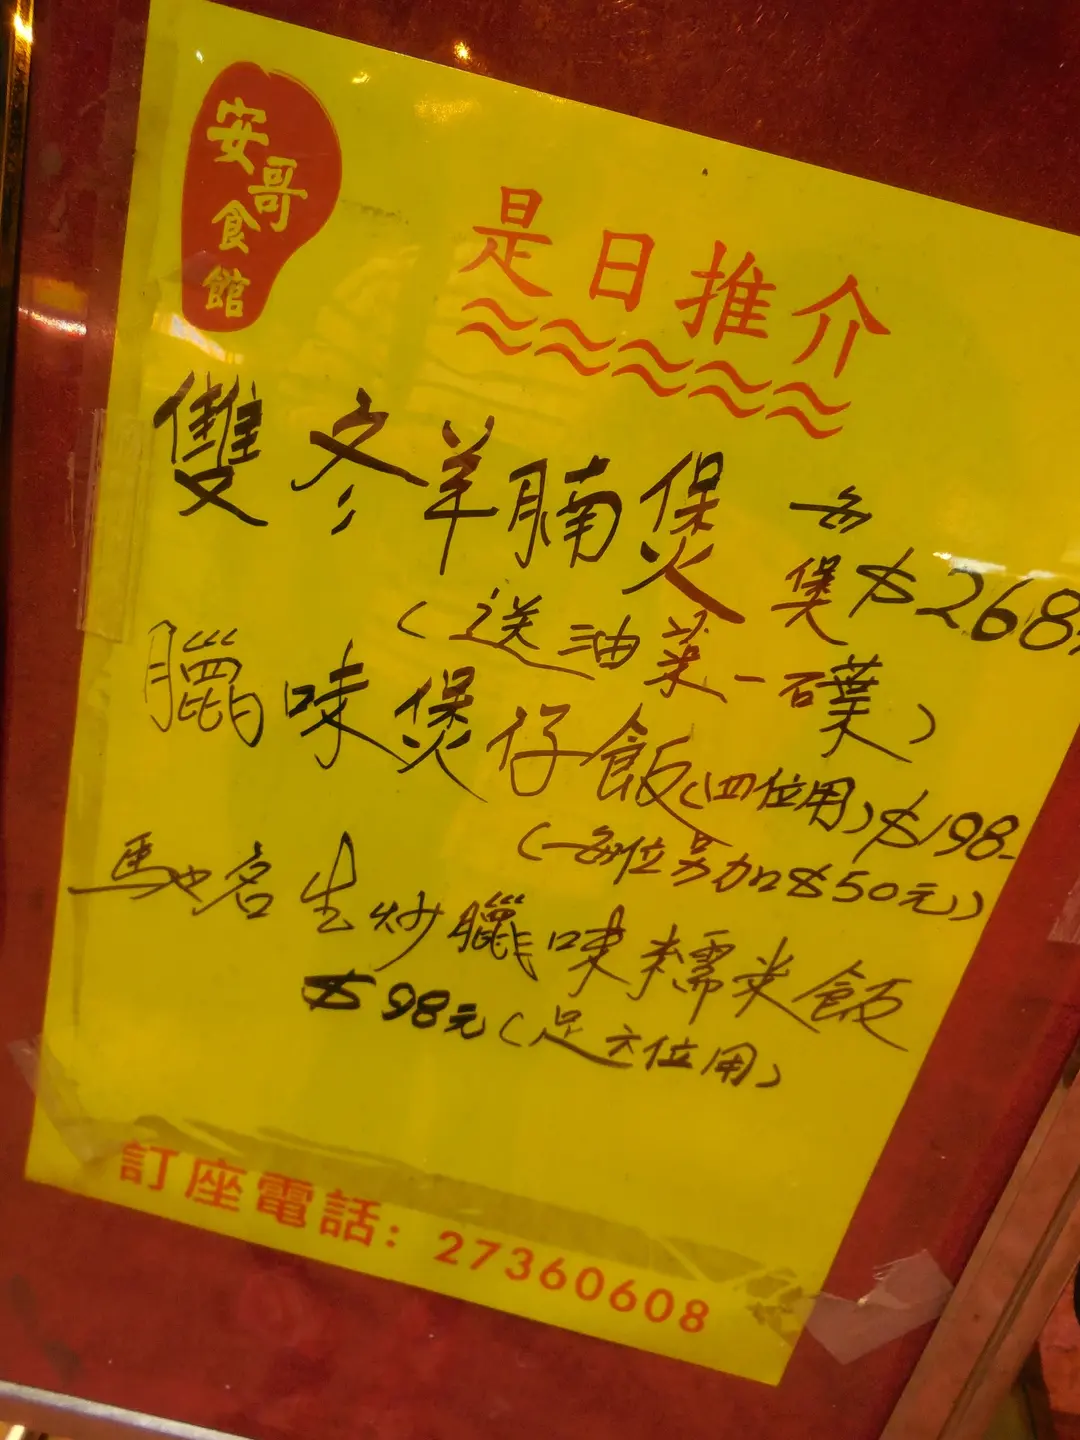 安哥食館
是日推介
雙冬羊腩煲 每煲$268
(送油菜一碟)
臘味煲仔飯(四位用)$198-
(每位另加$50元)
馳名生炒臘味糯米飯
$98元(足六位用)
訂座電話: 27360608